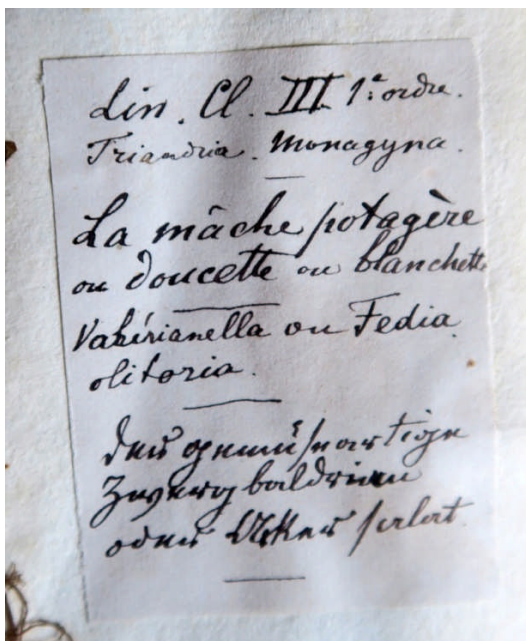 Lin. Cl. III 1.e ordre.
Triandria. Monagyna.
La mâche potagère
ou doucette ou blanchette
Valérianella ou Fedia
olitoria.
der gemüseartige
Zwergbaldrian
oder Ackersalat.